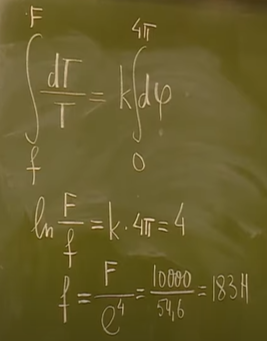 ∫_f^F dT/T = k ∫_0^{4π} dφ
ln F/f = k · 4π = 4
f = F/e⁴ = 10000/54,6 = 183 H